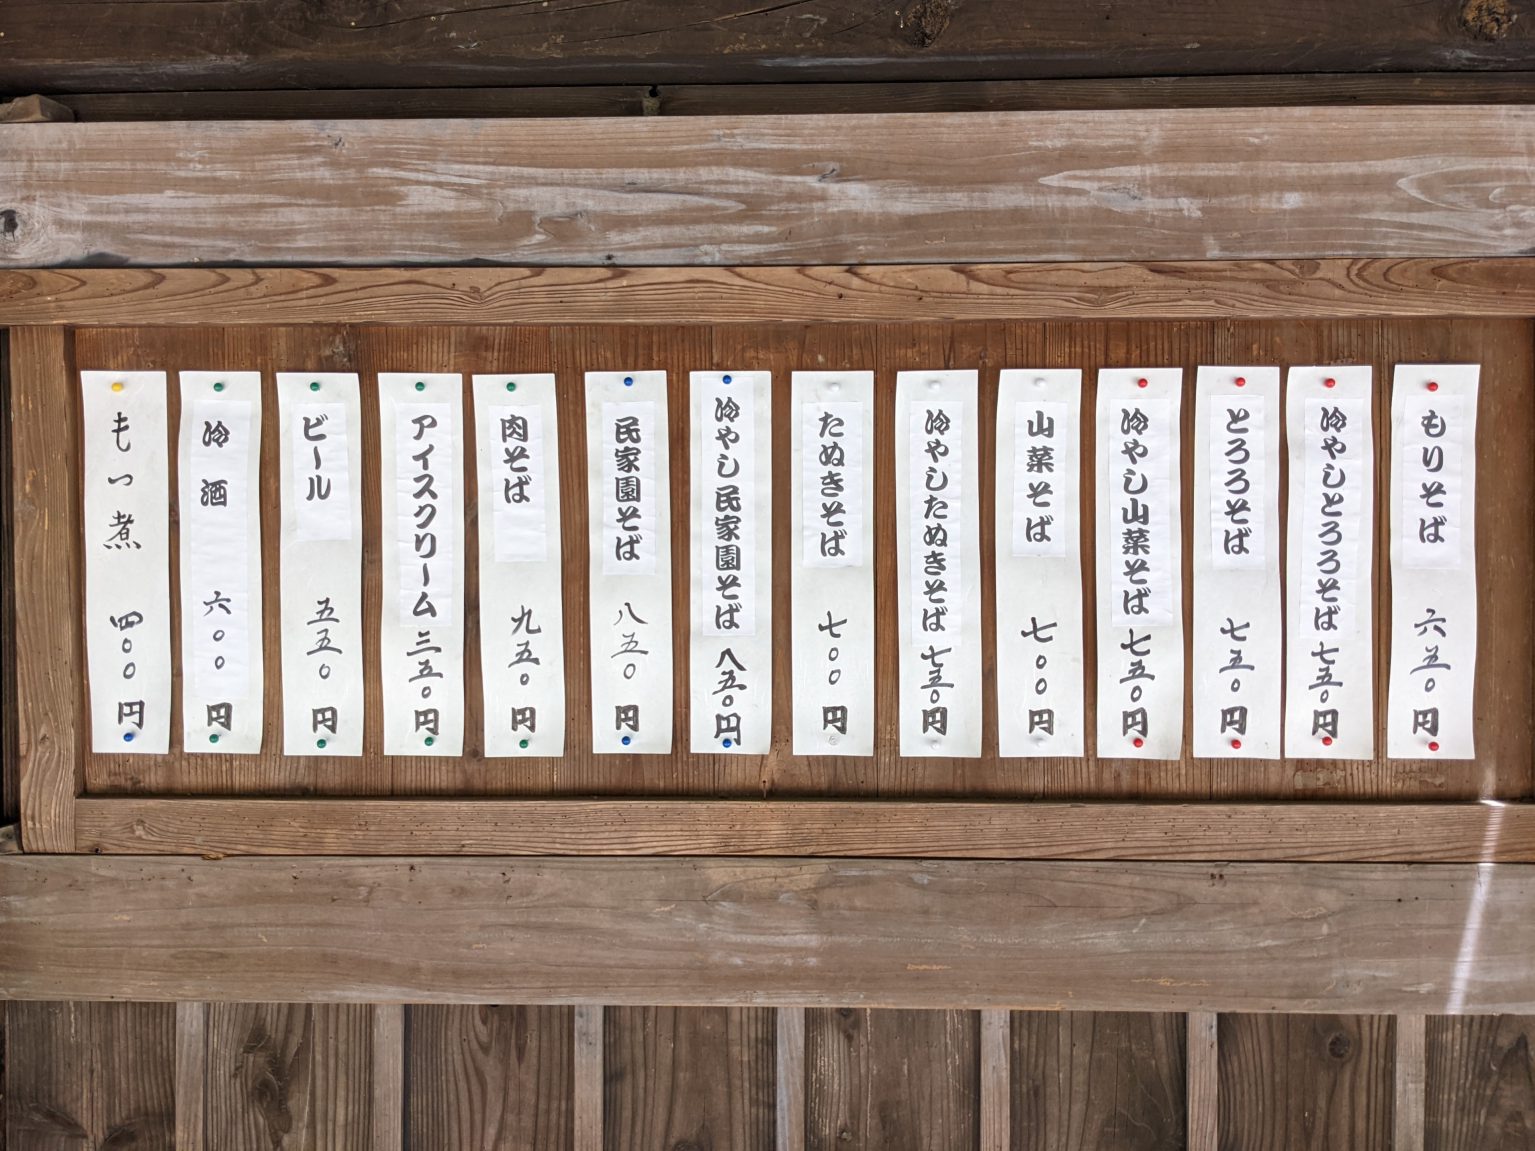 もりそば 六五〇円
冷やしとろろそば 七五〇円
とろろそば 七五〇円
冷やし山菜そば 七五〇円
山菜そば 七〇〇円
冷やしたぬきそば 七五〇円
たぬきそば 七〇〇円
冷やし民家園そば 八五〇円
民家園そば 八五〇円
肉そば 九五〇円
アイスクリーム 三五〇円
ビール 五五〇円
冷酒 六〇〇円
もつ煮 四〇〇円